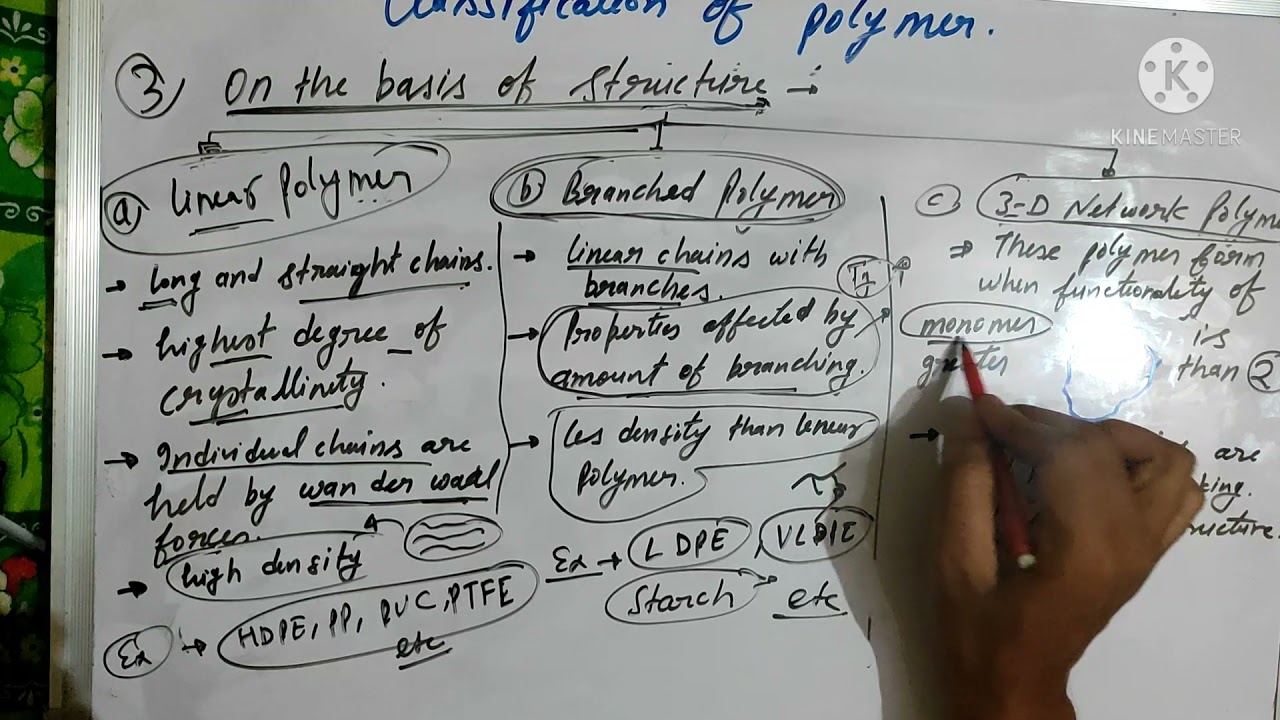 Classification of polymer.
3) On the basis of structure →
a) Linear Polymer
→ long and straight chains.
→ highest degree of
crystallinity.
→ Individual chains are
held by wan der waal
forces.
→ high density
Ex → HDPE, PP, PVC, PTFE
etc
b) Branched Polymer
→ linear chains with
branches.
→ Properties affected by
amount of branching.
→ Les density than linear
polymer.
Ex → LDPE, VLDPE
Starch etc
c) 3-D Network Polyme
⇒ These polymer form
when functionality of
monomer is
greater than 2
→ are
king.
ructure.
KINEMASTER